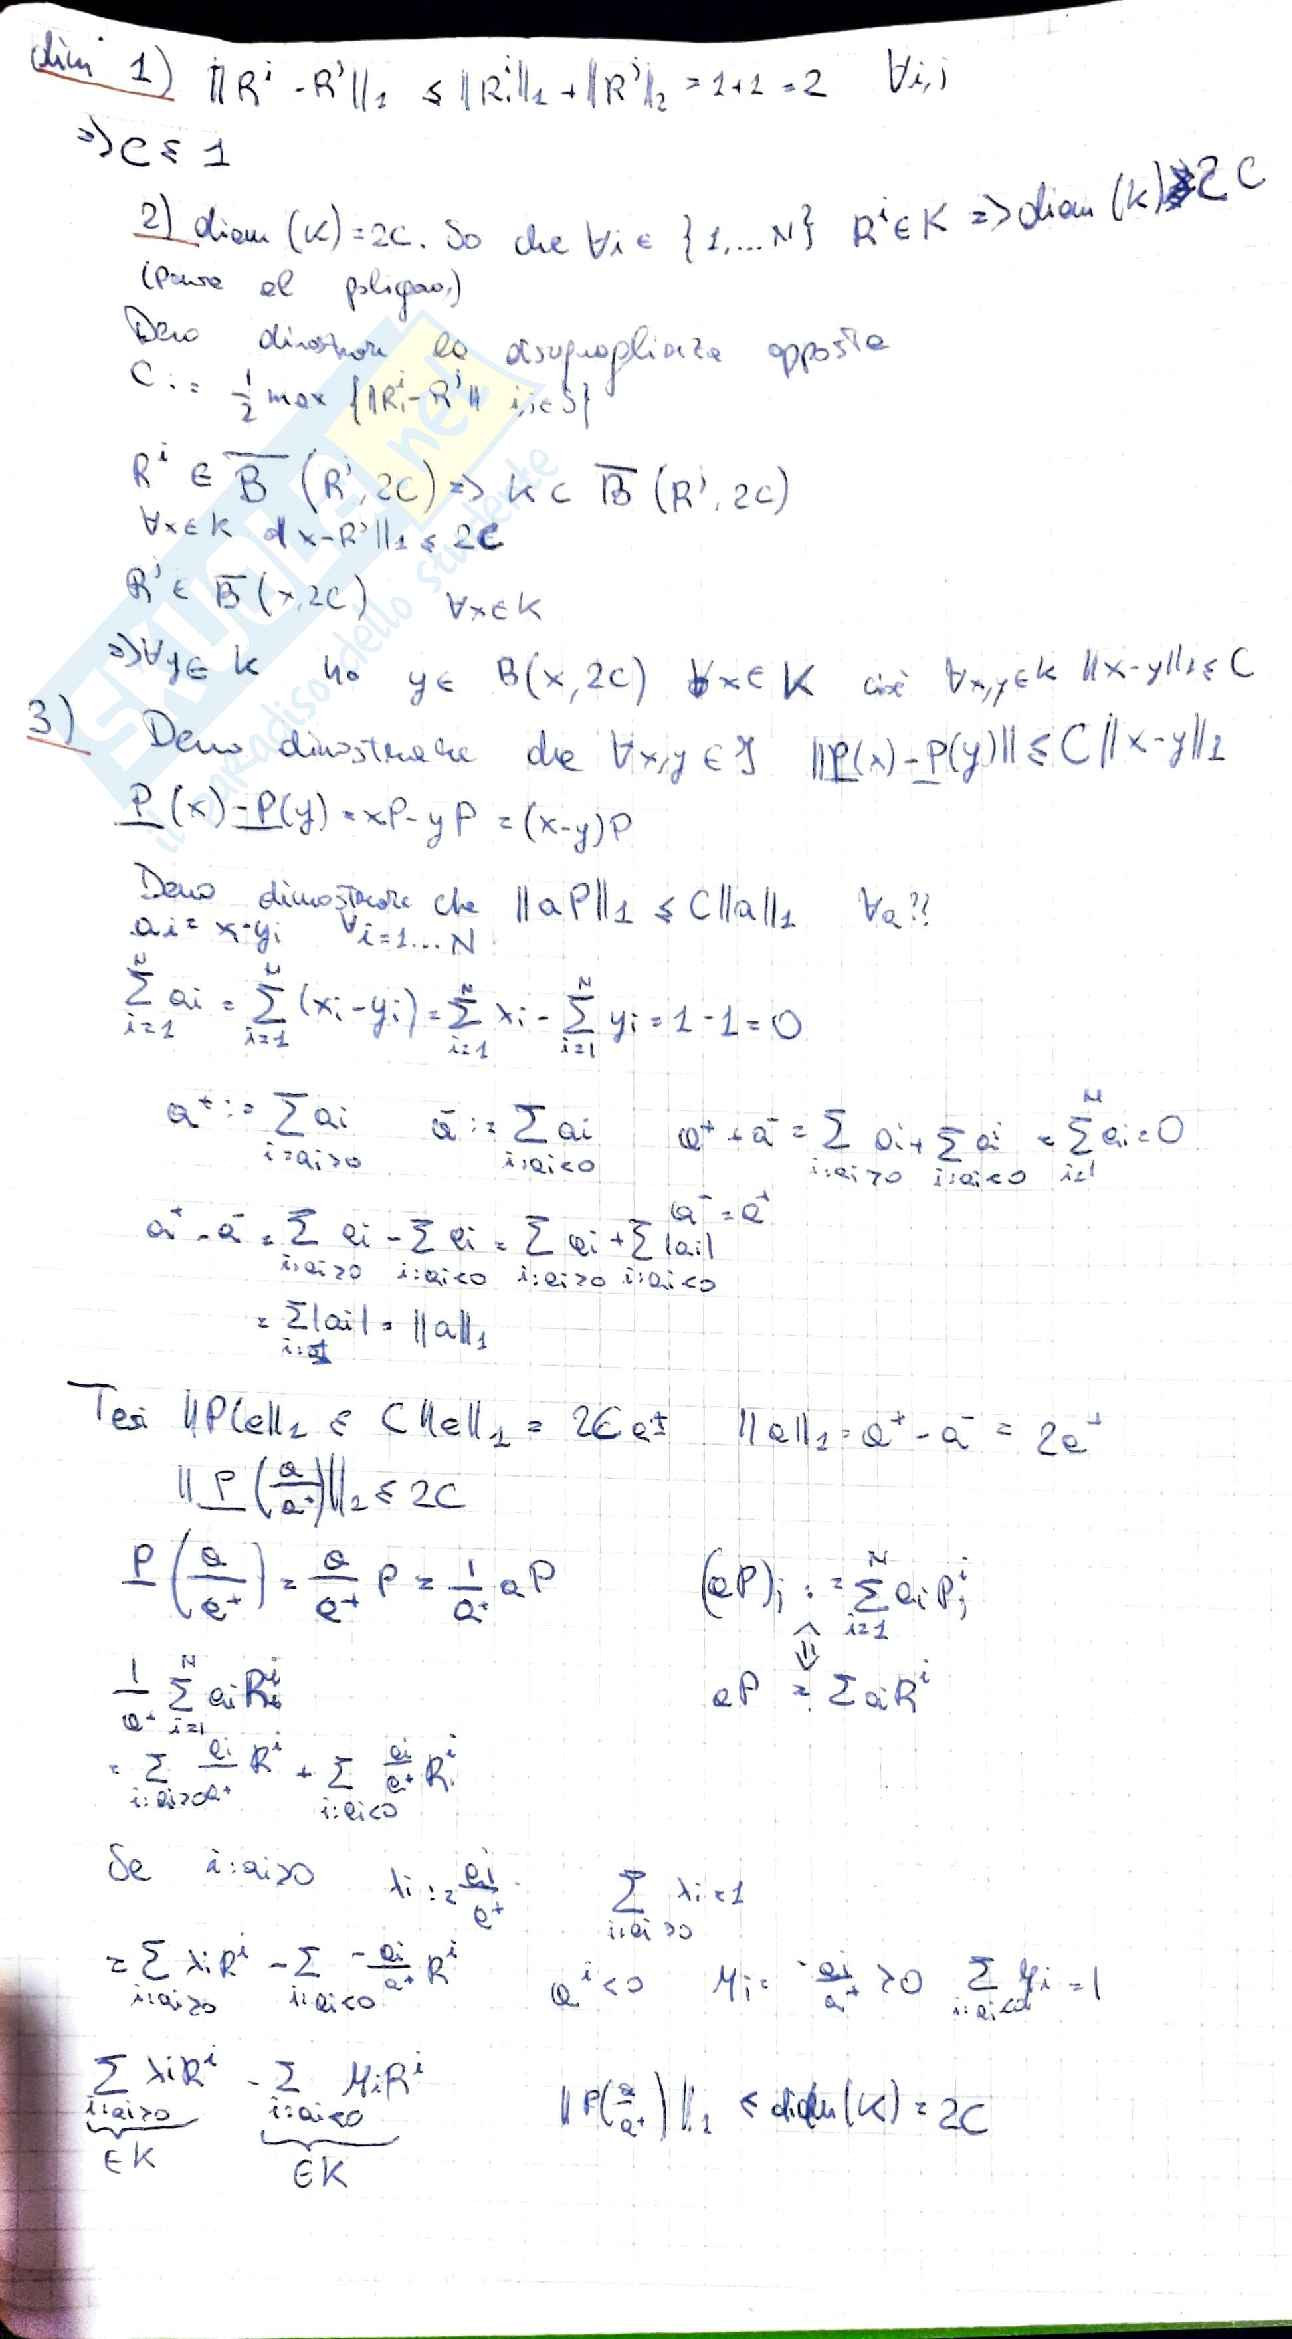 dim 1) ||R^i - R^j||_1 ≤ ||R^i||_1 + ||R^j||_1 = 1+1 = 2 ∀i,j
=> C ≤ 1
2) diam (K) = 2C. So che ∀i ∈ {1,...N} R^i ∈ K => diam (K) ≥ 2C
Devo dimostrare la disuguaglianza opposta
C := 1/2 max {||R^i - R^j|| i,j ∈ S}
R^i ∈ B̅ (R^j, 2C) => K ⊂ B̅ (R^j, 2C)
∀x ∈ K ||x - R^j||_1 ≤ 2C
R^j ∈ B̅ (x, 2C) ∀x ∈ K
=> ∀y ∈ K ho y ∈ B(x, 2C) ∀x ∈ K cioè ∀x,y ∈ K ||x-y||_1 ≤ C
3) Devo dimostrare che ∀x,y ∈ ||P(x) - P(y)|| ≤ C ||x-y||_1
P(x) - P(y) = xP - yP = (x-y)P
Devo dimostrare che ||aP||_1 ≤ C||a||_1 ∀a??
a_i = x_i - y_i ∀i=1...N
Σ_{i=1}^N a_i = Σ_{i=1}^N (x_i - y_i) = Σ_{i=1}^N x_i - Σ_{i=1}^N y_i = 1 - 1 = 0
a^+ := Σ_{i:a_i>0} a_i a^- := Σ_{i:a_i<0} a_i a^+ + a^- = Σ_{i:a_i>0} a_i + Σ_{i:a_i<0} a_i = Σ_{i=1}^N a_i = 0
a^- = a^+
a^+ - a^- = Σ_{i:a_i>0} a_i - Σ_{i:a_i<0} a_i = Σ_{i:a_i>0} a_i + Σ_{i:a_i<0} |a_i|
= Σ_{i=1} |a_i| = ||a||_1
Tesi ||P(a)||_1 ≤ C||a||_1 = 2C a^+ ||a||_1 = a^+ - a^- = 2a^+
||P(a/a^+)||_1 ≤ 2C
P(a/a^+) = a/a^+ P = 1/a^+ aP (aP)_j := Σ_{i=1}^N a_i P_j^i
⇕
1/a^+ Σ_{i=1}^N a_i R^i aP = Σ a_i R^i
= Σ_{i:a_i>0} a_i/a^+ R^i + Σ_{i:a_i<0} a_i/a^+ R^i
Se i:a_i>0 λ_i := a_i/a^+ Σ_{i:a_i>0} λ_i = 1
= Σ_{i:a_i>0} λ_i R^i - Σ_{i:a_i<0} -a_i/a^+ R^i a^i<0 μ_i = -a_i/a^+ > 0 Σ_{i:a_i<0} μ_i = 1
Σ_{i:a_i>0} λ_i R^i - Σ_{i:a_i<0} μ_i R^i ||P(a/a^+)||_1 ≤ diam(K) = 2C
∈K ∈K
SKUOLA.net
il paradiso dello studente